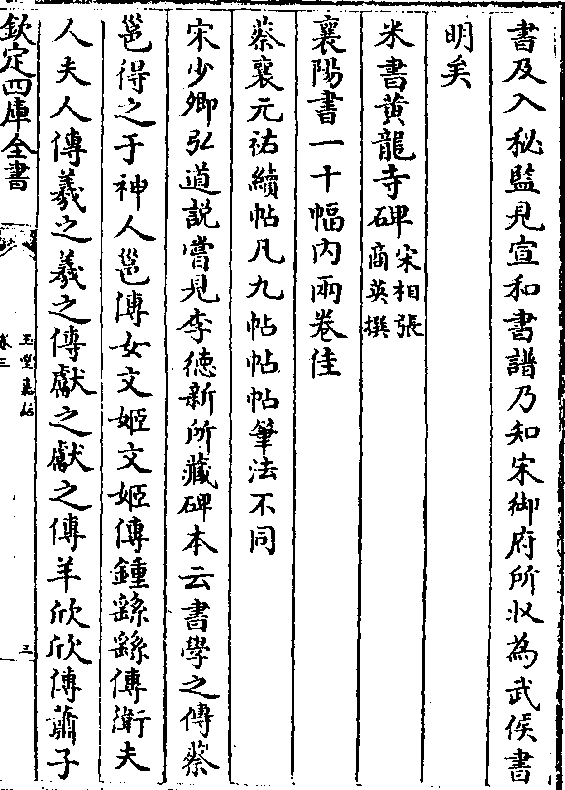 書及入秘監見宣和書譜乃知宋御府所收為武侯書
明矣
米書黄龍寺碑宋相張商英撰
襄陽書一十幅内兩卷佳
蔡襄元祐續帖凡九帖帖帖筆法不同
宋少卿弘道説嘗見李徳新所藏碑本云書學之傳蔡
邕得之于神人邕傳女文姬文姬傳鍾繇繇傳衛夫
人夫人傳羲之羲之傳獻之獻之傳羊欣欣傳蕭子
欽定四庫全書
玉堂嘉話
卷三
三